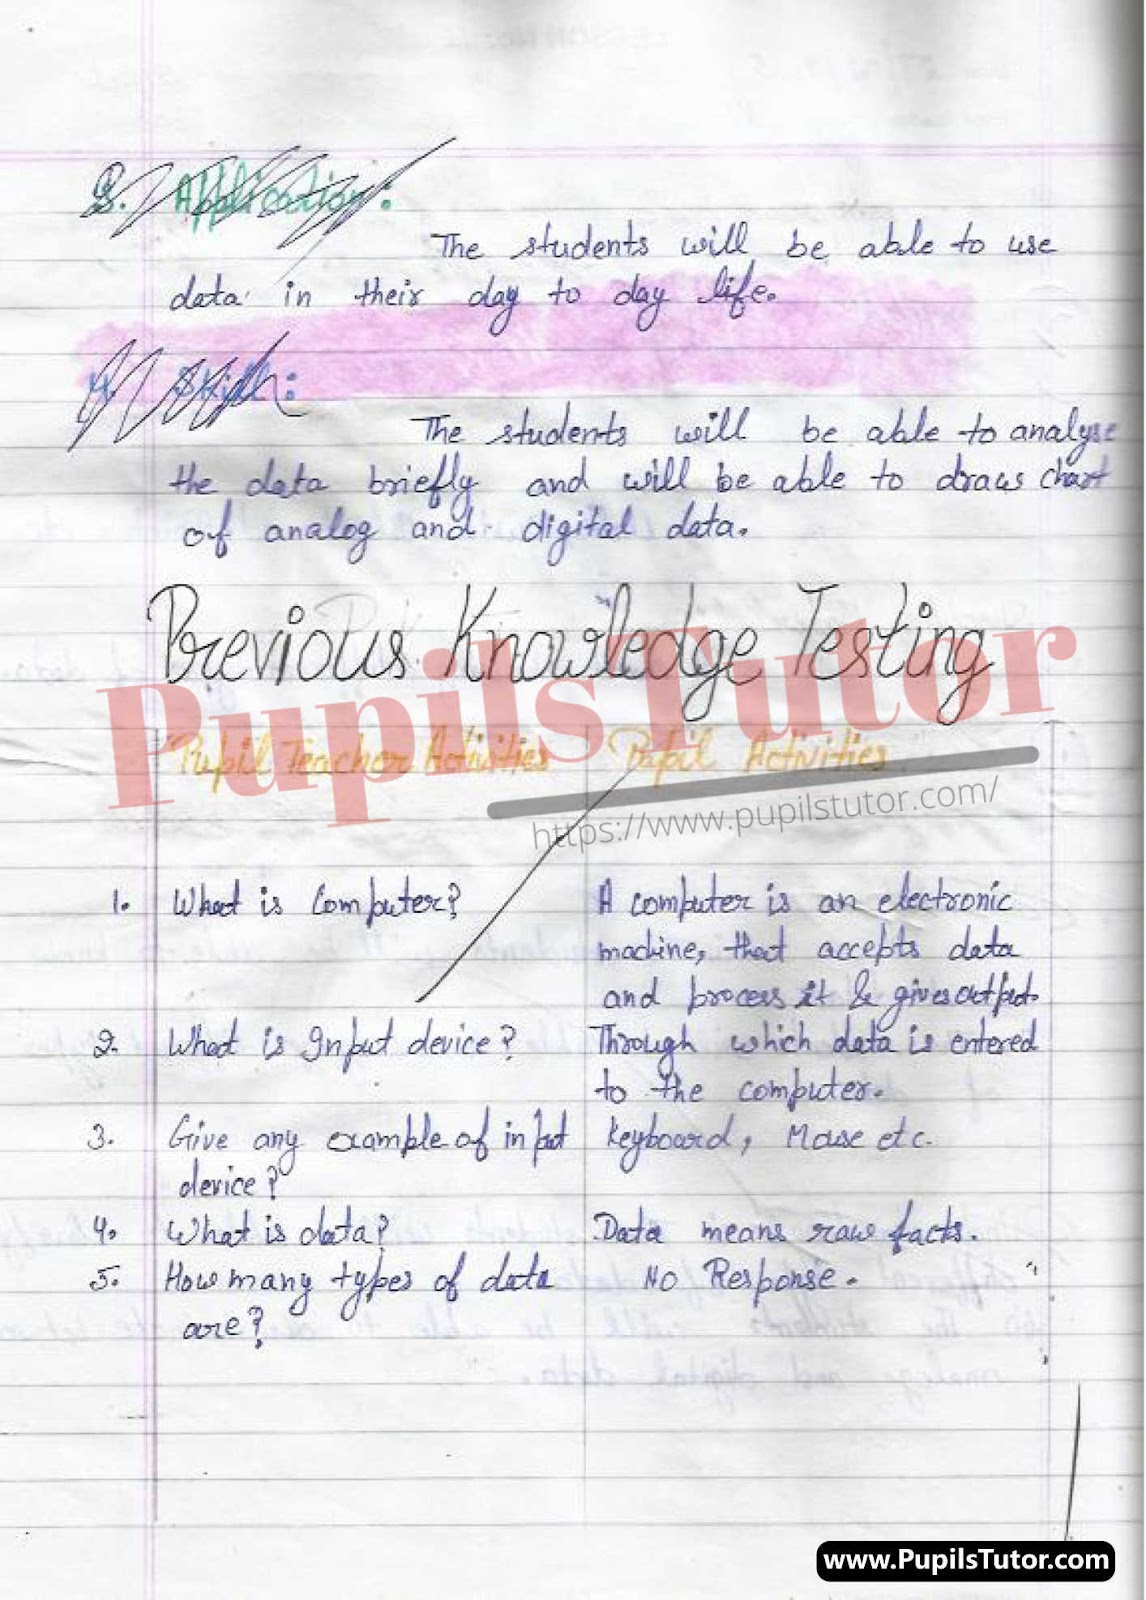 3. Application:
The students will be able to use
data in their day to day life.
4. Skill:
The students will be able to analyse
the data briefly and will be able to draws chart
of analog and digital data.
Previous Knowledge Testing
Pupils Tutor
Pupil Teacher Activities Pupil Activities
https://www.pupilstutor.com/
1. What is Computer? A computer is an electronic
machine, that accepts data
and process it & gives output.
2. What is Input device? Through which data is entered
to the computer.
3. Give any example of input Keyboard, Mouse etc.
device?
4. What is data? Data means raw facts.
5. How many types of data No Response.
are?
www.PupilsTutor.com